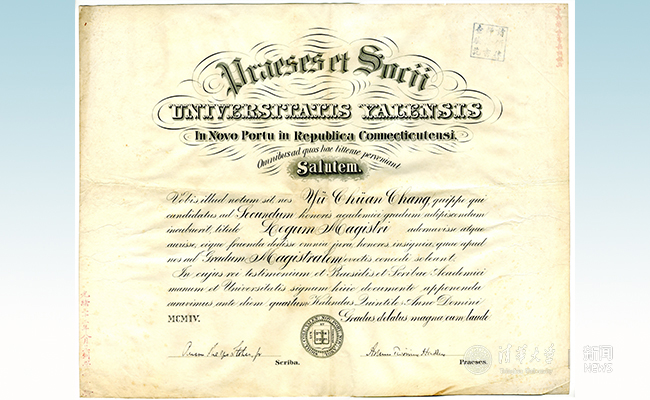 Praeses et Socii
UNIVERSITATIS YALENSIS
In Novo Portu in Republica Connecticutensi,
Omnibus ad quos hae litterae perveniant
Salutem.
Vobis illud notum sit, nos Yü Chüan Chang, quippe qui
candidatus ad Secundum honoris academici gradum adipiscendum
incubuerit, titulo Legum Magistri adornavisse atque
auxisse, eique fruenda dedisse omnia jura, honores, insignia, quae apud
nos ad Gradum Magistralem evectis concedi solent.
In cujus rei testimonium et Praesidis et Scribae Academici
manum et Universitatis signum huic documento apponenda
curavimus, ante diem quartum Kalendas Quintiles Anno Domini
MCMIV. Gradus delatus magna cum laude
Anson Phelps Stokes, Jr.
Scriba. Praeses.
清华大学 新闻
Tsinghua University NEWS